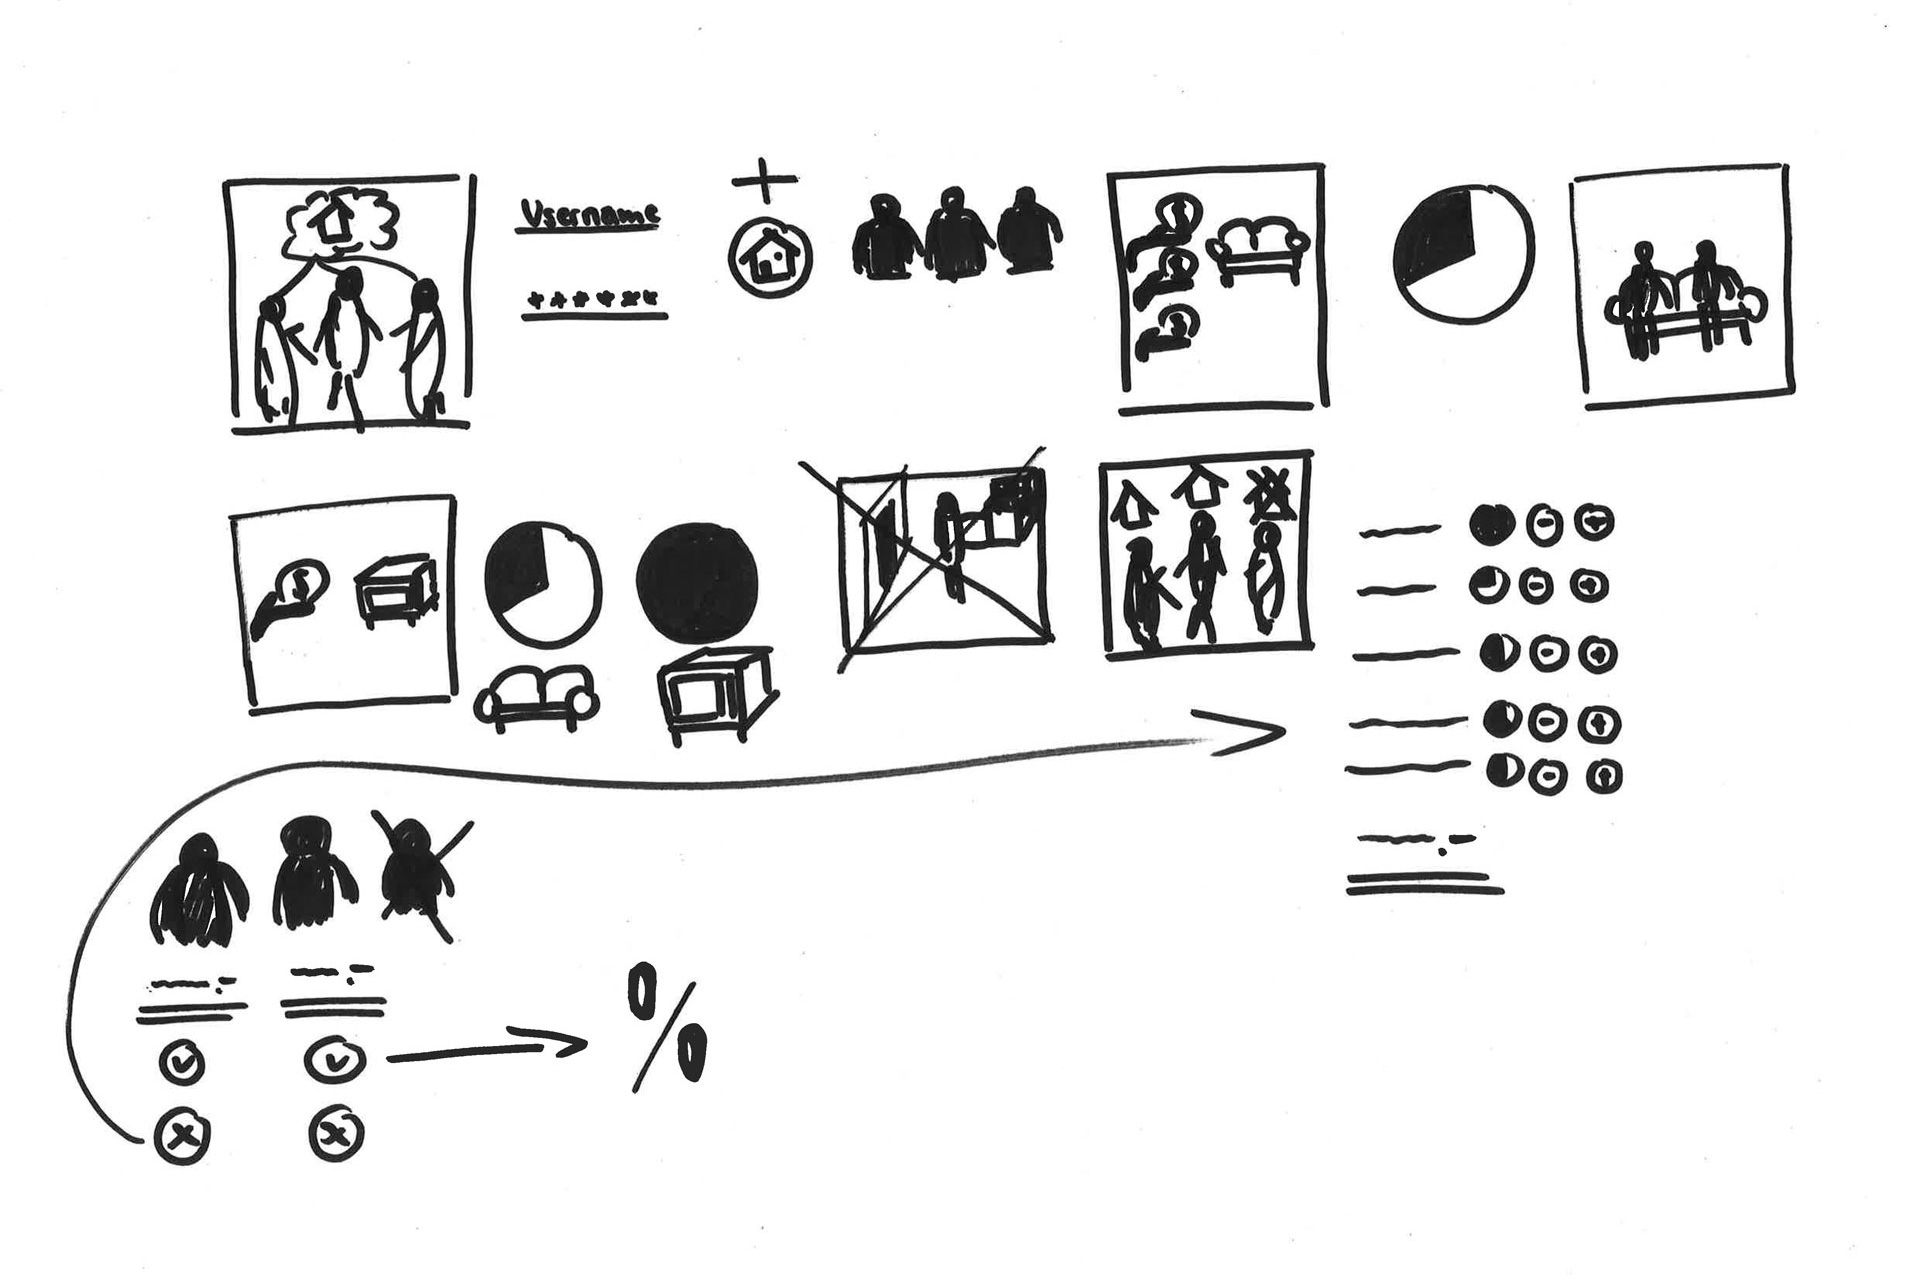 Username
******
$
%